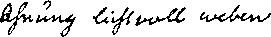 Ahnung lichtvoll weben